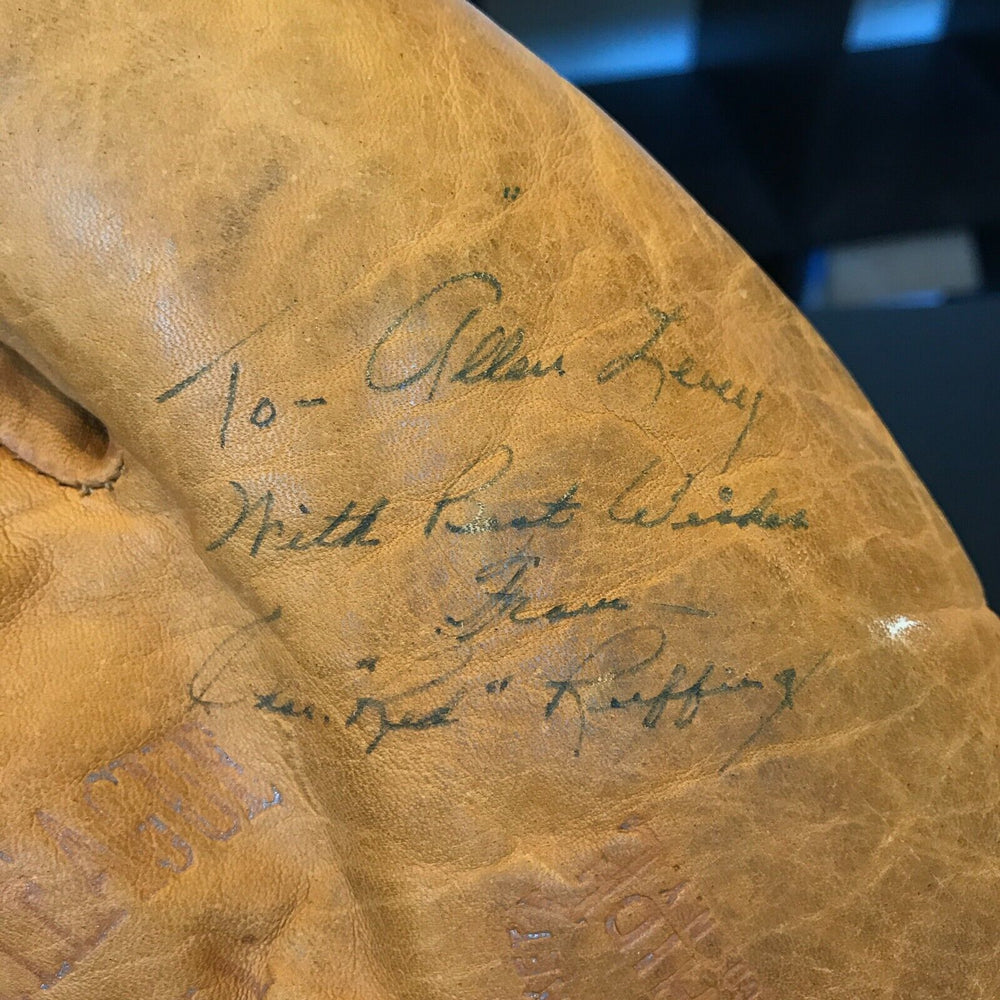 To- Allen Levey
With Best Wishes
From —
Chas. "Red" Ruffing
LEAGUE